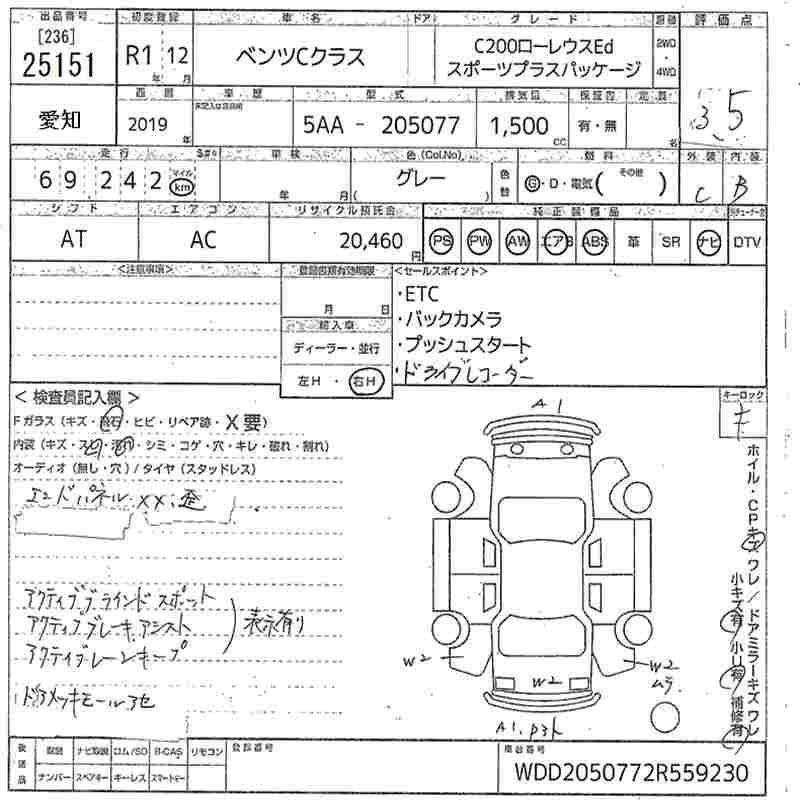 出品番号 初度登録 車名 ドア グレード 駆動 評価点
[236]
25151 R1 12 ベンツCクラス C200ローレウスEd 2WD
年 月 スポーツプラスパッケージ ・ 4WD
愛知 西暦 車歴 型式 排気量 保証書 定員 3.5
未記入は自家用
2019 年 5AA - 205077 1,500 cc 有・無 名
走行 S#* 車検 色(Col.No) 燃料 外装 内装
69242 マイル km 年 月 グレー ( ) 色替 G・D・電気( その他 ) C B
シフト エアコン リサイクル預託金 純正装備品
AT AC 20,460 円 PS PW AW エアB ABS 革 SR ナビ DTV
<注意事項> 登録書類有効期限 <セールスポイント>
月 日 ・ETC
輸入車 ・バックカメラ
ディーラー・並行 ・プッシュスタート
左H・右H ・ドライブレコーダー
<検査員記入欄> A1 キーロック
Fガラス(キズ・飛石・ヒビ・リペア跡・X要) キ
内装(キズ・スレ・汚れ・シミ・コゲ・穴・キレ・破れ・割れ)
オーディオ(無し・穴)/タイヤ(スタッドレス)
エンドパネルXX.歪
ホイル・CPキズ ワレ/ドアミラーキズ ワレ
小キズ有 小凹有 補修有
アクティブブラインドスポット
アクティブブレーキアシスト 表示有り
アクティブレーンキープ
W2 W2 W2
ムラ
ドアメッキモール
A1.P3ト
後送品 取説 ナビ取説 ロム/SD B-CAS リモコン 登録番号 車台番号
ナンバー スペアキー キーレス スマートキー WDD2050772R559230